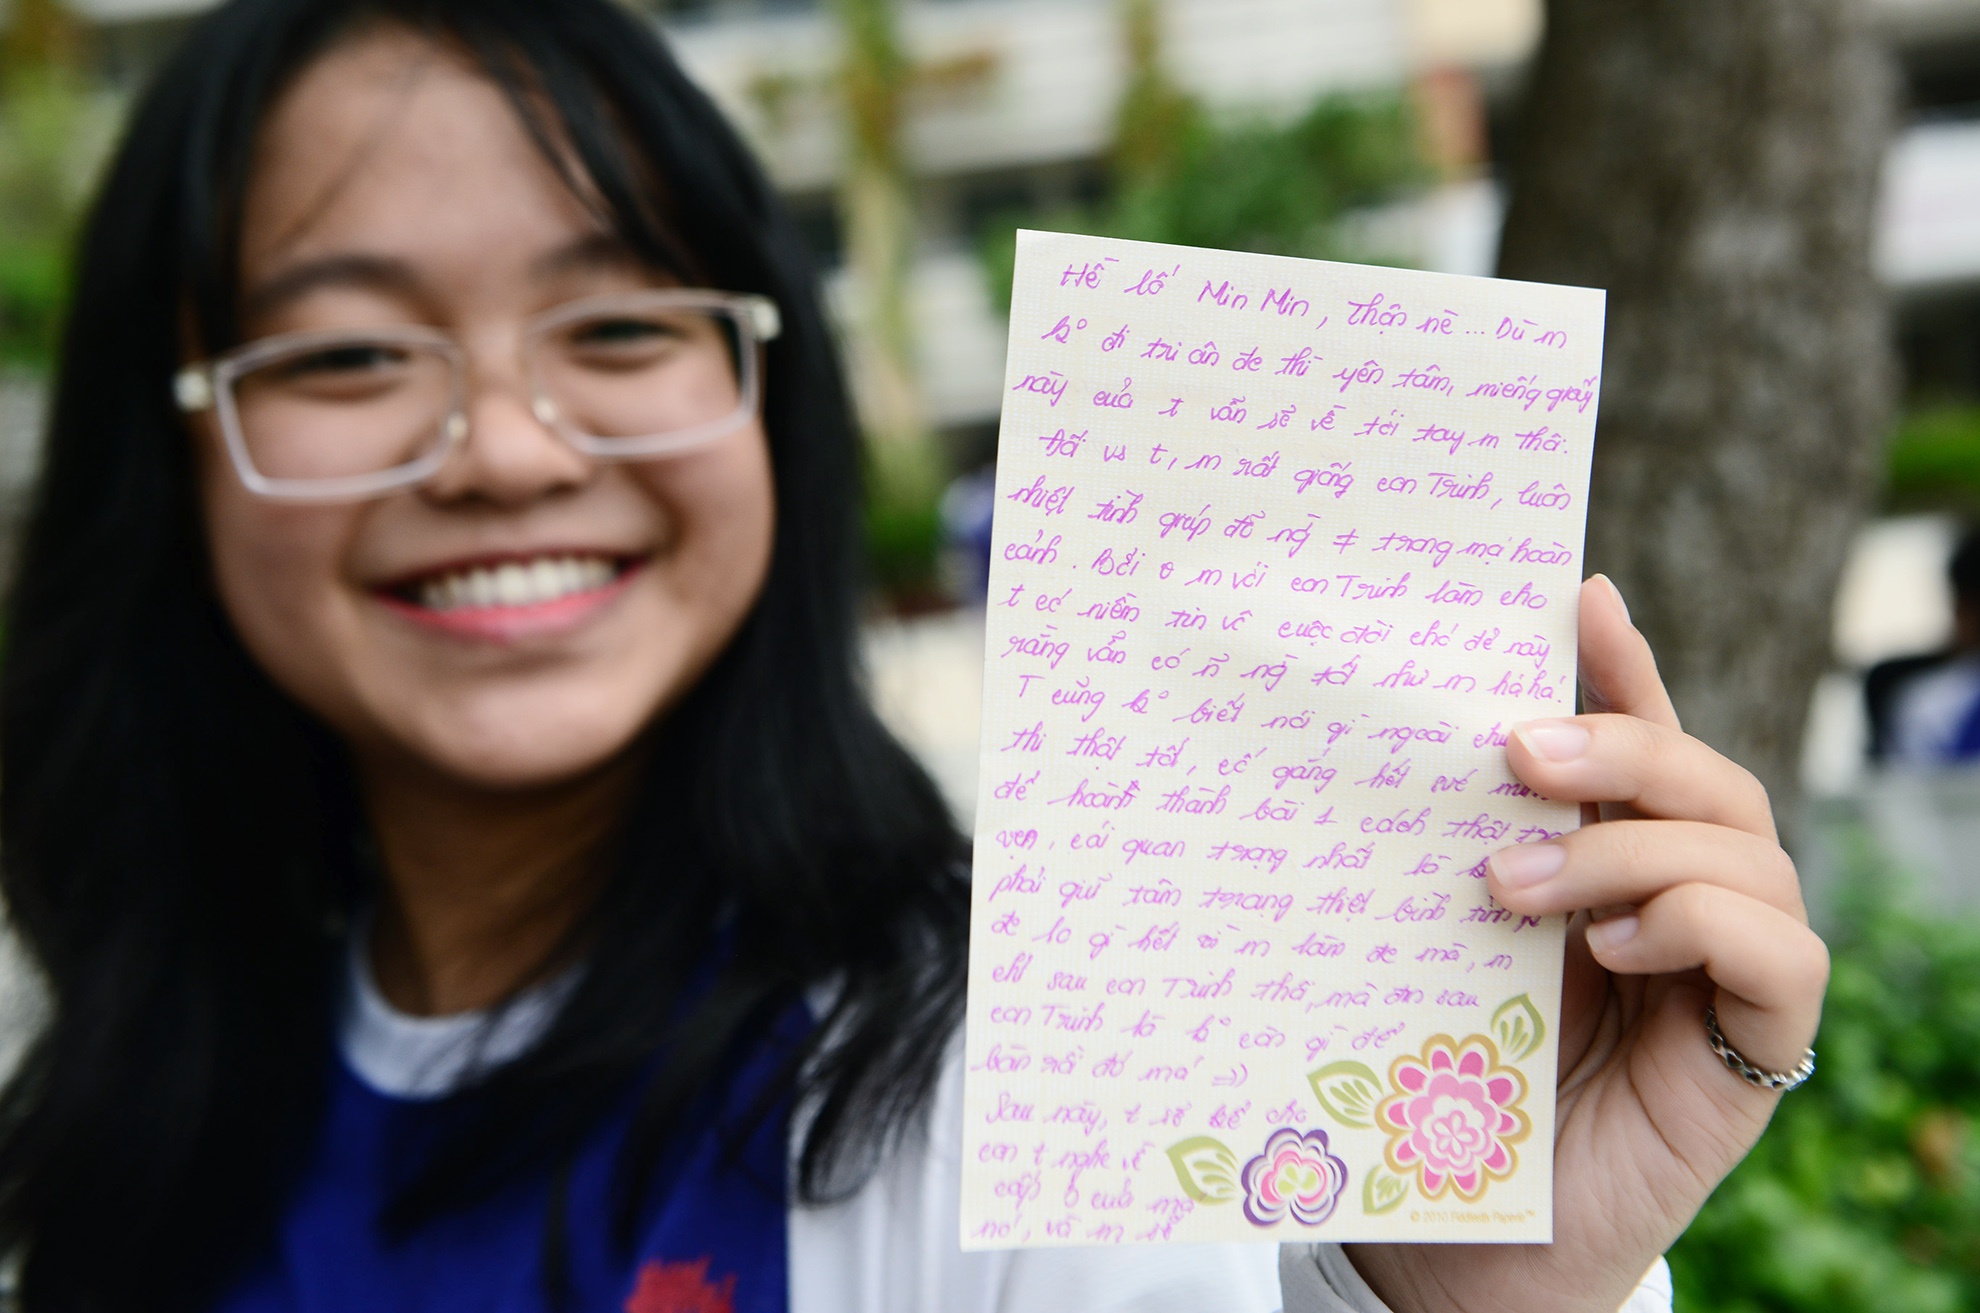 Hế lố Min Min, Thận nè... Dù m
k° đi tri ân đc thì yên tâm, miếng giấy
này của t vẫn sẽ về tới tay m thôi.
Đối vs t, m rất giống con Trinh, luôn
nhiệt tình giúp đỡ ng` ≠ trong mọi hoàn
cảnh. Bởi m với con Trinh làm cho
t có niềm tin về cuộc đời chó đẻ này
rằng vẫn có ng` tốt như m há há!
T cũng k° biết nói gì ngoài
thi thật tốt, cố gắng hết sức
để hoành thành bài 1 cách thật
vẹn, cái quan trọng nhất là
phải giữ tâm trạng thiệt bình tĩnh
đc lo gì hết vì m làm đc mà, m
chỉ sau con Trinh thôi, mà đm sau
con Trinh là k° còn gì để
bàn rồi đó má =))
Sau này, t sẽ kể cho
con t nghe về
cấp 3 của mẹ
nó, và m sẽ
© 2010 Papers™